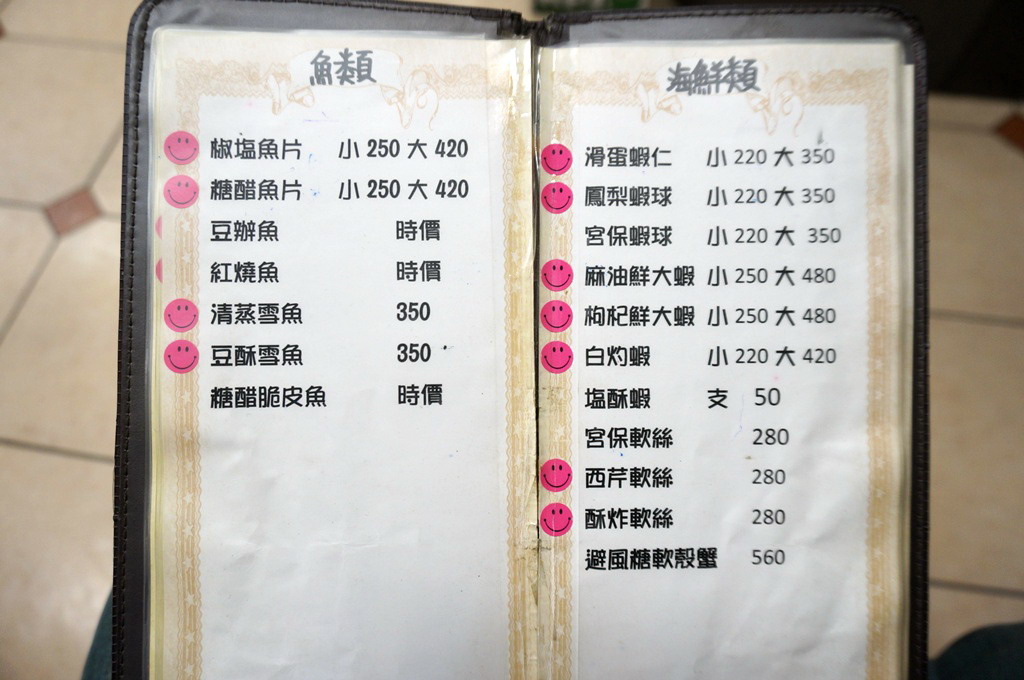 魚類
椒塩魚片 小 250 大 420
糖醋魚片 小 250 大 420
豆瓣魚 時價
紅燒魚 時價
清蒸雪魚 350
豆酥雪魚 350
糖醋脆皮魚 時價
海鮮類
滑蛋蝦仁 小 220 大 350
鳳梨蝦球 小 220 大 350
宮保蝦球 小 220 大 350
麻油鮮大蝦 小 250 大 480
枸杞鮮大蝦 小 250 大 480
白灼蝦 小 220 大 420
塩酥蝦 支 50
宮保軟絲 280
西芹軟絲 280
酥炸軟絲 280
避風糖軟殼蟹 560